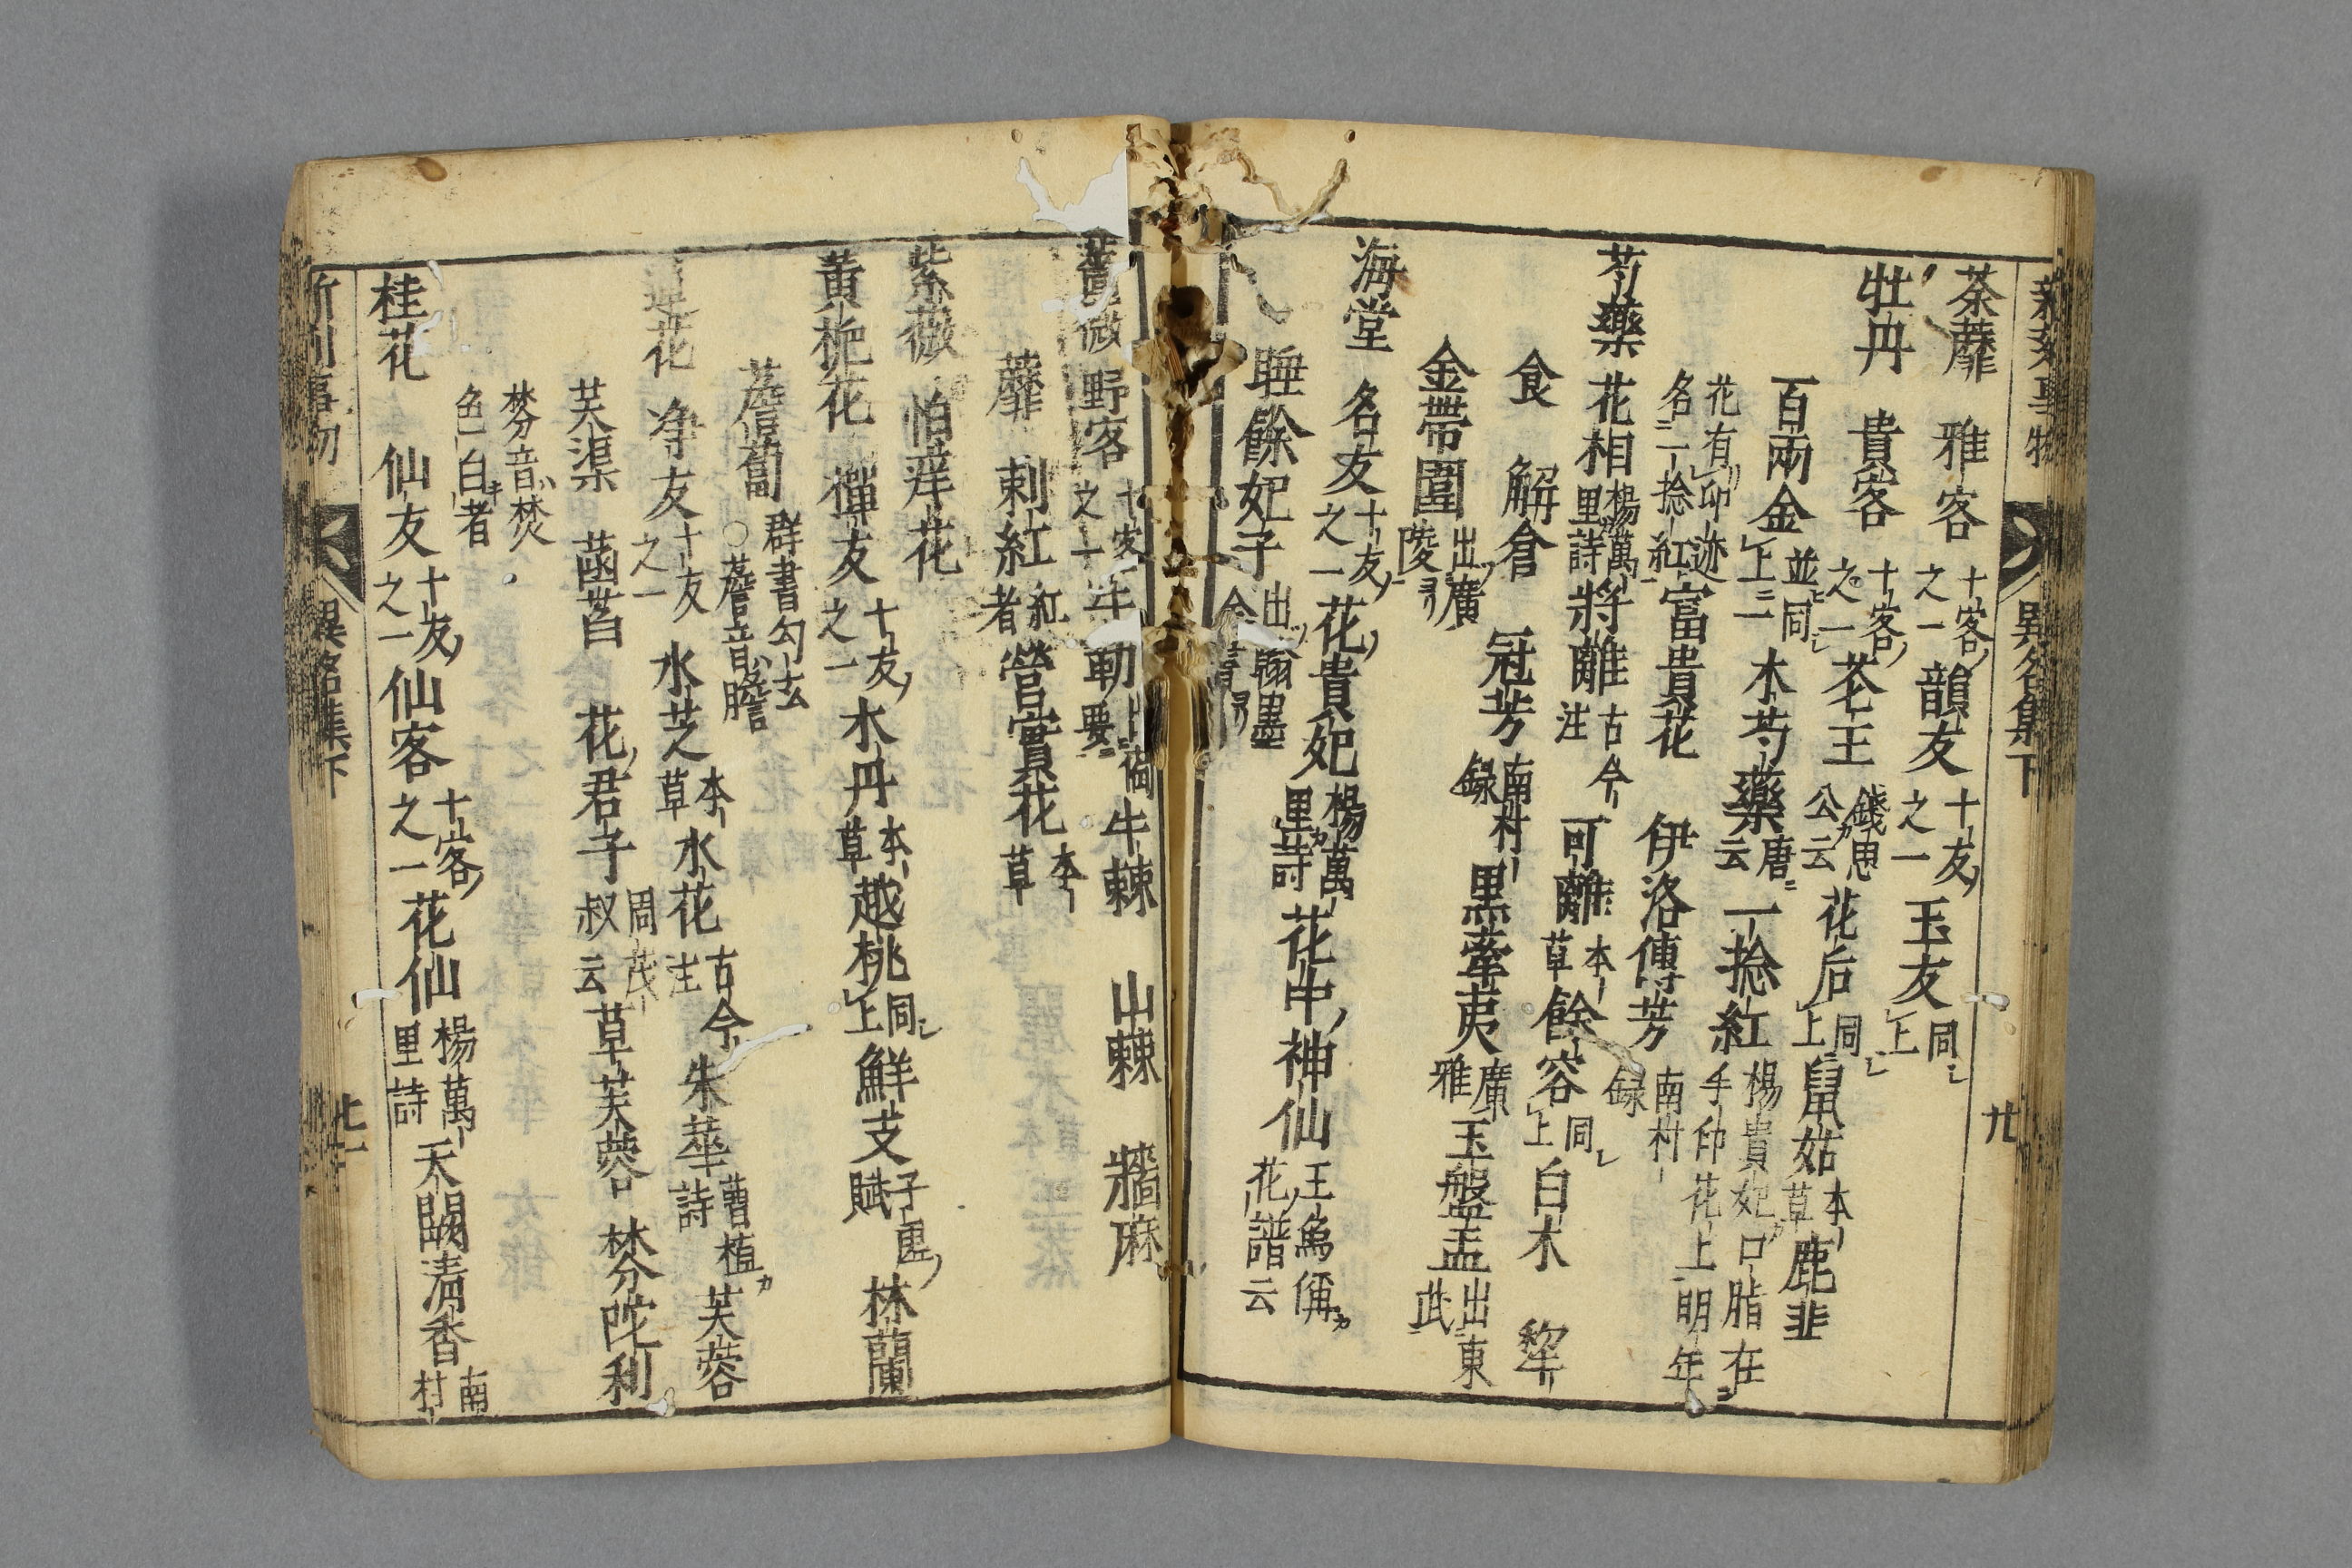 新刻事物 異名集下 廿
荼蘼 雅客 十客之一 韻友 十友之一 玉友 同上
牡丹 貴客 十客之一 花王 錢思公云 花后 同上 鼠姑 本草 鹿韭
百兩金 並同上二 木芍藥 唐云 一捻紅 楊貴妃口脂在手印花上明年
花有印迹名一捻紅 富貴花 伊洛傳芳 南村録
芍藥 花相 楊萬里詩 將離 古今注 可離 本草 餘容 同上 白木 犂
食 解倉 冠芳 南村録 黒牽夷 廣雅 玉盤盂 出東武
金帶圍 出廣陵
海堂 名友 十友之一 花貴妃 楊萬里詩 花中神仙 王禹偁花譜云
睡餘妃子 出翰墨全書
薔薇 野客 十客之一 牛勒 出 要 牛棘 山棘 墻麻
蘼 刺紅 紅者 營實花 本草
紫薇 怕痒花
黃梔花 禪友 十友之一 水丹 本草 越桃 同上 鮮支 子虛賦 林蘭
薝蔔 群書勾玄 ○薝音膽
蓮花 净友 十友之一 水芝 本草 水花 古今注 朱華 曹植詩 芙蓉
芙渠 菡萏 花君子 周茂叔云 草芙蓉 棼陀利
棼音焚色白者
桂花 仙友 十友之一 仙客 十客之一 花仙 楊萬里詩 天闕清香 南村
新刻事物 異名集下 廿一